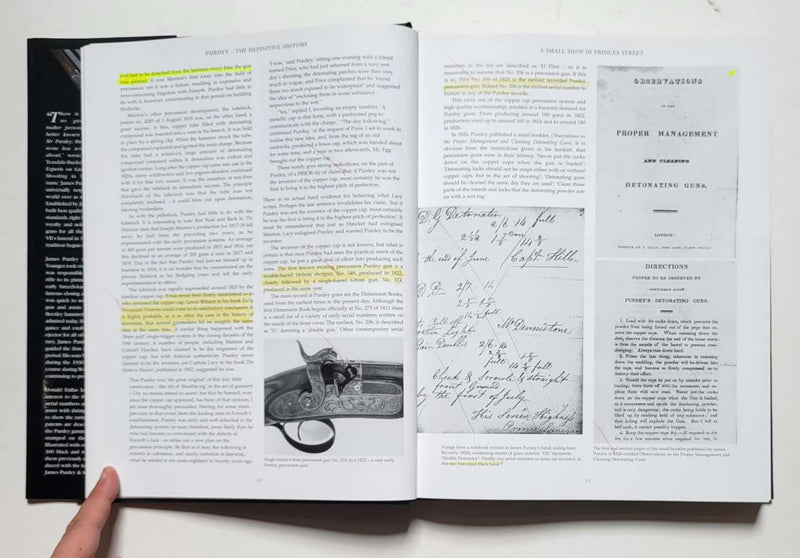 PURDEY — THE DEFINITIVE HISTORY
and had to be detached from the hammer every time the gun
was primed. It was Manton's first foray into the field of
percussion, yet it was a failure, resulting in expensive and
time-consuming litigation with Forsyth. Purdey had little to
do with it, however, concentrating in that period on building
flintlocks.
Manton's other percussion development, the tubelock,
patent no. 4285 of 3 August 1818 was, on the other hand, a
great success. A thin, copper tube filled with detonating
compound was inserted into a vent in the breech. It was held
in place by a spring clip. When the hammer struck the tube,
the compound exploded and ignited the main charge. Because
the tube had a relatively large amount of detonating
compound contained within it, detonation was violent and
ignition certain. Long after the copper cap came into use in the
1820s, many wildfowlers and live pigeon-shooters continued
with it for this very reason. It was the cessation of
that gave the tubelock its immediate success. The principle
drawback of the tubelock was that the tube was not
completely enclosed – it could blow out upon detonation,
injuring bystanders.
As with the pelletlock, Purdey had little to do with
the tubelock. It is interesting to note that Neal and Back in The
Mantons state that Joseph Manton's production for 1817–18 fell
away to half from the preceding years, as he
experimented with the early percussion systems. An average
of 400 guns per annum were produced in 1815 and 1816, yet
this declined to an average of 200 guns a year in 1817 and
1818. Due to the fact that Purdey had not set himself up in
business in 1814, it is no wonder that he concentrated on the
proven flintlock in his fledgling years and left the early
experimentation to others.
The tubelock was rapidly superseded around 1820 by the
familiar copper cap. It has never been firmly established as to
who invented the copper cap. Lewis Winant in his book Early
Percussion Firearms could come to no satisfactory conclusion. It
is highly probable, as is so often the case in the history of
invention, that several gunmakers hit on roughly the same
idea at the same time. A similar thing happened with the
'three-pull' single-trigger system in the closing decades of the
19th century. A number of people, including Manton and
Colonel Hawker, have claimed to be the originator of the
copper cap, but with dubious authenticity. Purdey never
claimed to be the inventor, yet Captain Lacy in his book The
Modern Shooter, published in 1842, suggested he was.
That Purdey was the great original of this tidy little
contrivance – the bit of 'Manillering' as to the art of gunnery
– I by no means intend to assert, but that he himself, ever
since the copper cap appeared, has been of that opinion, I
am most thoroughly persuaded. Having, for some years
previous to that event, been the leading man at Forsyth's
establishment, Purdey was early and au fait at the
detonating system; no man, therefore, more likely than he
who had become so conversant with the defects of
Forsyth's lock – to strike out a new plan on the
percussion principle. Be that as it may, the following is
entirely in substance, and nearly verbatim or literatim,
what he related to me some eighteen or twenty years ago.
'I was,' said Purdey, 'sitting one evening with a friend
named Price, who had just returned from a very wet
day's shooting; the detonating patches were then very
much in vogue, and Price complained that he 'found
them too much exposed to be waterproof' and suggested
the idea of 'enclosing them in some substance
impervious to the wet.'
'Yes,' replied I, inverting an empty tumbler. 'A
metallic cap in this form, with a perforated peg to
communicate with the charge.' 'The day following,' I
continued Purdey, 'at the request of Price, I set to work to
realise this new idea, and, from the tag of an old
umbrella, produced a brass cap, which was handed about
for some time, and a year or two afterwards, Mr. Egg
brought out the copper cap.'
These surely give strong indications, on the part of
Purdey, of a PRIOR-ity of claim. But, if Purdey was not
the inventor of the copper cap, most certainly he was the
first to bring it to the highest pitch of perfection.
There is no actual hard evidence for believing what Lacy
writes. Perhaps his last sentence invalidates his claim, 'but if
Purdey was not the inventor of the copper cap, most certainly
he was the first to bring it to the highest pitch of perfection'. It
must be remembered that just as Hawker had eulogised
Manton, Lacy eulogised Purdey and wanted Purdey to be the
inventor.
The inventor of the copper cap is not known, but what is
certain is that once Purdey had seen the practical merit of the
copper cap, he put a great deal of effort into producing such
arms. The first known existing percussion Purdey gun is a
double-barrel 14-bore shotgun, No. 349, produced in 1822,
closely followed by a single-barrel 6-bore gun, No. 374,
produced in the same year.
The main record of Purdey guns are the Dimension Books,
used from the earliest times to the present day. Although the
first Dimension Book begins officially at No. 275 of 1821 there
is a small list of a variety of early serial numbers written on
the inside of the front cover. The earliest, No. 206, is described
as 'D', denoting a 'double gun'. Other contemporary serial
Single-barrel 6-bore percussion gun No. 374 circa 1822 – a very early
Purdey percussion gun.
12
A SMALL SHOP IN PRINCES STREET
numbers in the list are described as 'D Flint', so it is
reasonable to assume that No. 206 is a percussion gun. If this
is so, then No. 206 of 1820 is the earliest recorded Purdey
percussion gun. Indeed No. 206 is the earliest serial number to
feature in any of the Purdey records.
This early use of the copper cap percussion system and
high-quality workmanship, resulted in a buoyant demand for
Purdey guns. From producing around 100 guns in 1822,
production went up to around 145 in 1824 and to around 180
in 1826.
In 1826, Purdey published a small booklet, Observations on
the Proper Management and Cleaning Detonating Guns. It is
obvious from the instructions given in his booklet, that
percussion guns were in their infancy. 'Never put the cocks
down on the copper caps when the gun is loaded';
'Detonating locks should not be snapt either with or without
copper caps, but in the act of shooting'; 'Detonating guns
should be cleaned the same day they are used'; 'Clean those
parts of the breech and locks that the detonating powder acts
on with a wet rag'.
D. G Detonator
2/6 14 full
the end of June Capt Hellen
D.D. 2/7. 14
Mr Dennistone
2/6. 14
14 full
Check & Serants & straight
front Guard
by the first of feby
His Serein Highness
A page from a notebook written in James Purdey's hand, dating from
the early 1820s, containing details of guns ordered. 'DD' represents
'Double Detonator'. Hardly any serial numbers or dates are recorded. Is
this the 'lost small black book'?
OBSERVATIONS
ON THE
PROPER MANAGEMENT
AND CLEANING
DETONATING GUNS.
LONDON:
DIRECTIONS
PROPER TO BE OBSERVED BY
GENTLEMEN USING
PURDEY'S DETONATING GUNS.
1. Load with the cocks down, which prevents the
powder from being forced out of the pegs that receive
the copper caps. When ramming down the
shot, observe the distance the end of the brass worm
is from the muzzle of the barrel to prevent over-
charging. Always ram down hard.
2. Prime the last thing, otherwise in ramming
down the wadding, the powder will be driven into
the caps, and become so firmly compressed as to
destroy their effect.
3. Should the caps be put on by mistake prior to
loading, force them off with the turnscrew, and re-
place them with new ones. Never put the cocks
down on the copper caps when the Gun is loaded,
as it compresses and spoils the detonating powder,
and is very dangerous; the cocks being liable to be
lifted up by catching hold of any substance; and
then falling will explode the Gun. But if left at
half cock, it cannot possibly happen.
4. Keep the copper caps dry—if exposed to the
fire for a few minutes when required for use, is
The first and second pages of the small booklet published by James
Purdey in 1826 entitled Observations on the Proper Management and
Cleaning Detonating Guns.
13